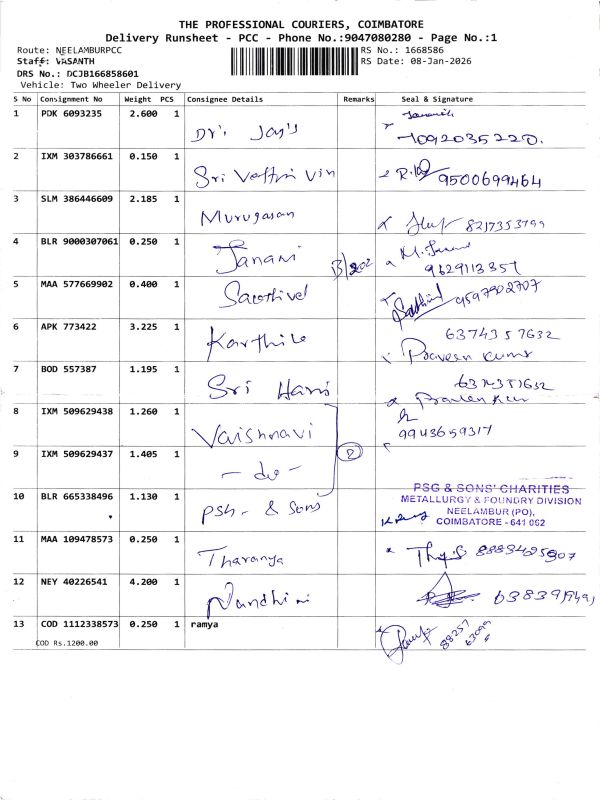 THE PROFESSIONAL COURIERS, COIMBATORE
Delivery Runsheet - PCC - Phone No.:9047080280 - Page No.:1
Route: NEELAMBURPCC RS No.: 1668586
Staff: VASANTH RS Date: 08-Jan-2026
DRS No.: DCJB166858601
Vehicle: Two Wheeler Delivery
S No Consignment No Weight PCS Consignee Details Remarks Seal & Signature
1 PDK 6093235 2.600 1 Dr's Jay's
7092035220.
2 IXM 303786661 0.150 1 Sri Vethri Vin 9500699464
3 SLM 386446609 2.185 1 Murugasan 8217353799
4 BLR 9000307061 0.250 1 Janani B/202
9629113357
5 MAA 577669902 0.400 1 Sacothivel 9597902707
6 APK 773422 3.225 1 Karthik 6374357632
Praveen Kumar
7 BOD 557387 1.195 1 Sri Hari
8 IXM 509629438 1.260 1 Vaishnavi 9943659317
9 IXM 509629437 1.405 1 - do -
10 BLR 665338496 1.130 1 PSG - & Sons
PSG & SONS' CHARITIES
METALLURGY & FOUNDRY DIVISION
NEELAMBUR (PO),
COIMBATORE - 641 062
11 MAA 109478573 0.250 1 Tharanya 8883425907
12 NEY 40226541 4.200 1 Nandhini
13 COD 1112338573 0.250 1 ramya
COD Rs.1200.00
88257
63099